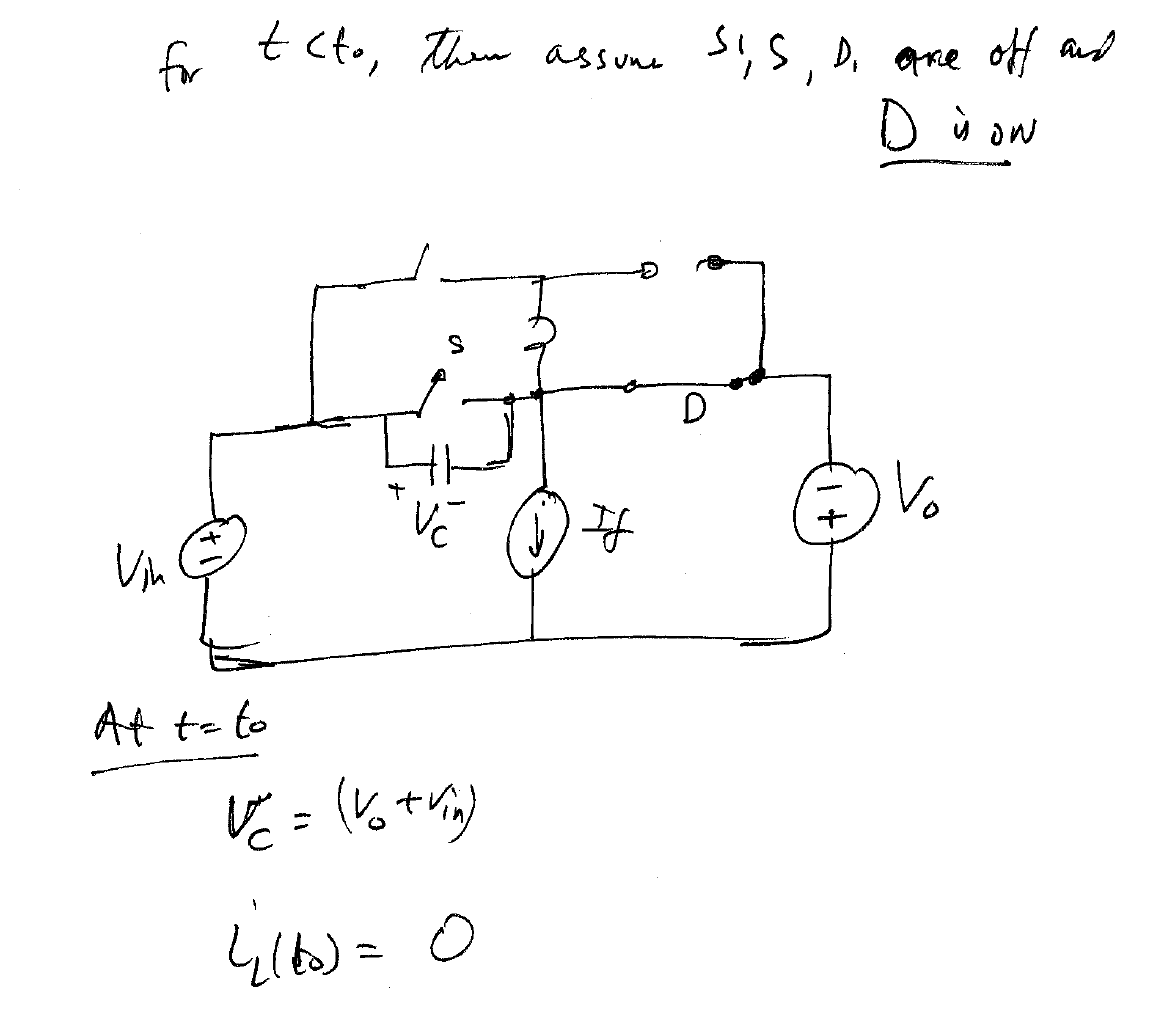 for t < t₀, Then assume S1, S, D₁ are off and
D is ON
S
D
+ V_C -
I_f
+
-
V_in
-
+
V_o
At t = t₀
V_C = (V_o + V_in)
i_L(t₀) = 0